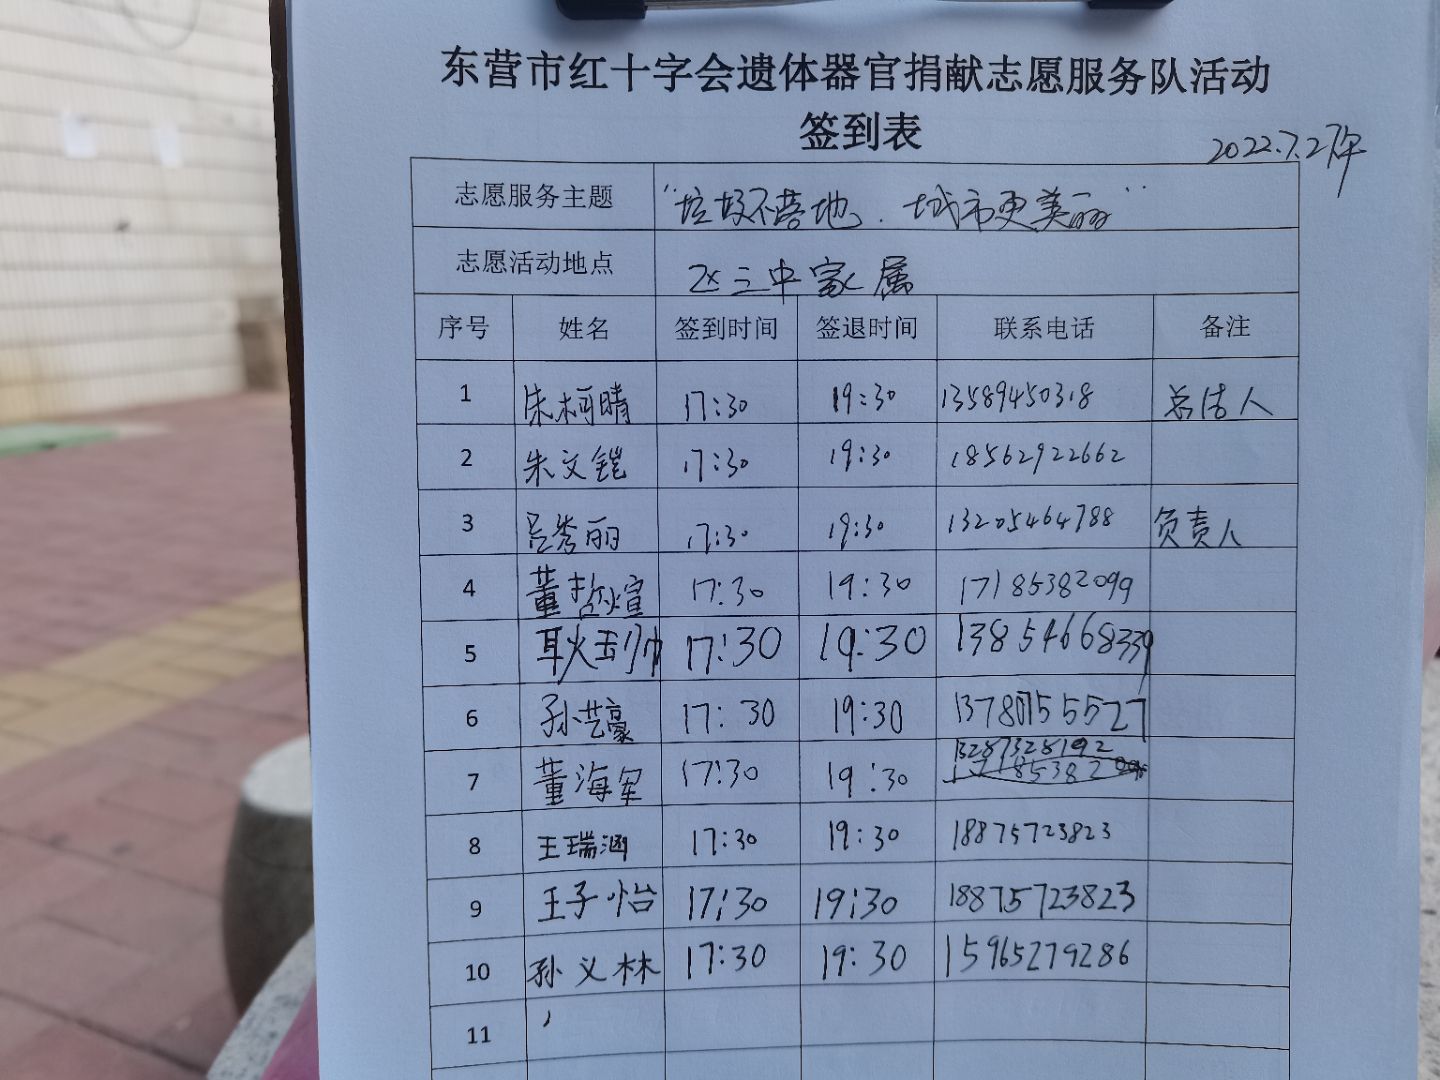 东营市红十字会遗体器官捐献志愿服务队活动
签到表
2022.7.2下午
志愿服务主题 “垃圾不落地.城市更美丽”
志愿活动地点 区三中家属
序号 姓名 签到时间 签退时间 联系电话 备注
1 朱柯晴 17:30 19:30 13589450318 总法人
2 朱文铠 17:30 19:30 18562922662
3 吕秀丽 17:30 19:30 13205464788 负责人
4 董哲煊 17:30 19:30 17185382099
5 耿玉帅 17:30 19:30 13854668339
6 孙艺豪 17:30 19:30 13780755527
7 董海军 17:30 19:30 13287328192
8 王瑞涵 17:30 19:30 18875723823
9 王子怡 17:30 19:30 18875723823
10 孙义林 17:30 19:30 15965279286
11